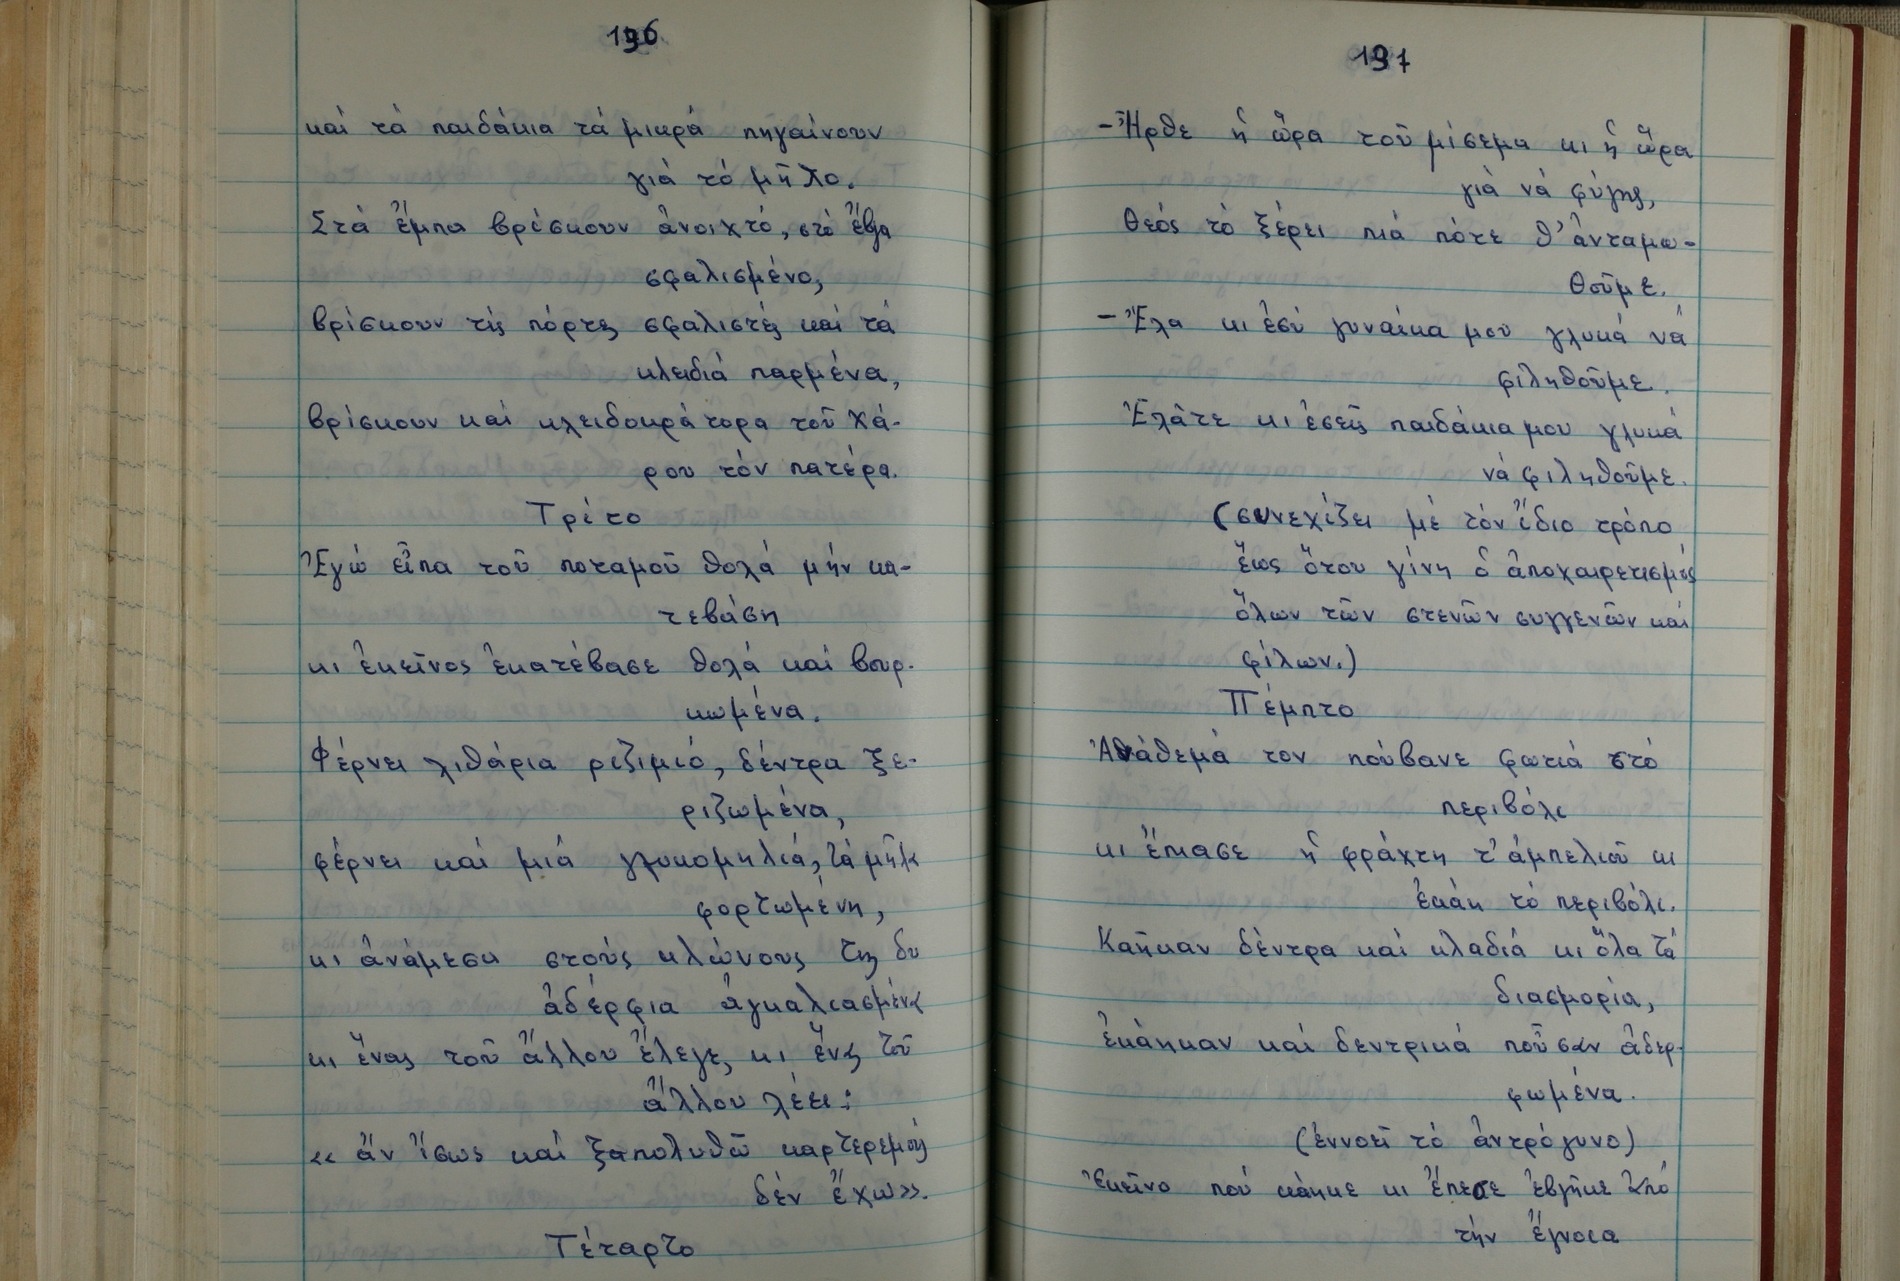 196
καί τά παιδάκια τά μικρά πηγαίνουν
γιά τό μῆλο.
Στά ἔμπα βρίσκουν ἀνοιχτό, στό ἔβγα
σφαλισμένο,
βρίσκουν τίς πόρτες σφαλιστές καί τά
κλειδιά παρμένα,
βρίσκουν καί κλειδοκράτορα τοῦ Χά-
ρου τόν πατέρα.
Τρίτο
Ἐγώ εἶπα τοῦ ποταμοῦ θολά μήν κα-
τεβάση
κι ἐκεῖνος ἐκατέβασε θολά καί βουρ-
κωμένα.
Φέρνει λιθάρια ριζιμιό, δέντρα ξε-
ριζωμένα,
φέρνει καί μιά γλυκομηλιά, τά μῆλα
φορτωμένη,
κι ἀνάμεσα στούς κλώνους της δυ
ἀδέρφια ἀγκαλιασμένα
κι ἕνας τοῦ ἄλλου ἔλεγε, κι ἕνας τοῦ
ἄλλου λέει:
«ἄν ἴσως καί ξαπολυθῶ καρτερεμούς
δέν ἔχω».
Τέταρτο
197
-Ἦρθε ἡ ὥρα τοῦ μίσεμα κι ἡ ὥρα
γιά νά φύγης,
Θεός τό ξέρει πιά πότε θ' ἀνταμω-
θοῦμε.
-Ἔλα κι ἐσύ γυναίκα μου γλυκά νά
φιληθοῦμε.
Ἐλᾶτε κι ἐσεῖς παιδάκια μου γλυκά
νά φιληθοῦμε.
(συνεχίζει μέ τόν ἴδιο τρόπο
ἕως ὅτου γίνη ὁ ἀποχαιρετισμός
ὅλων τῶν στενῶν συγγενῶν καί
φίλων.)
Πέμπτο
Ἀνάθεμά τον πούβανε φωτιά στό
περιβόλι
κι ἔπιασε ἡ φράχτη τ' ἀμπελιοῦ κι
ἐκάη τό περιβόλι.
Καῆκαν δέντρα καί κλαδιά κι ὅλα τά
διασμορία,
ἐκάηκαν καί δεντρικά ποῦσαν ἀδερ-
φωμένα.
(ἐννοεῖ τό ἀντρόγυνο)
Ἐκεῖνο πού κάηκε κι ἔπεσε ἐβγῆκε ἀπό
τήν ἔγνοια